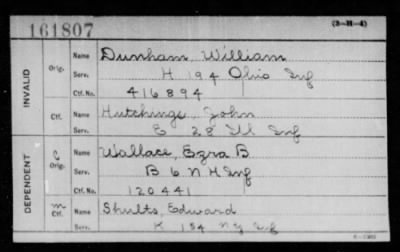 161807
(3-H-4)
INVALID
Orig.
Name Dunham, William
Serv. H 194 Ohio Inf
Ctf. No. 416894
Ctf.
Name Hutchings, John
Serv. E 28 Ill Inf
DEPENDENT
Orig.
Name Wallace, Ezra B
Serv. B 6 N H Inf
Ctf. No. 120441
m
Ctf.
Name Shults, Edward
Serv. K 154 NY Inf